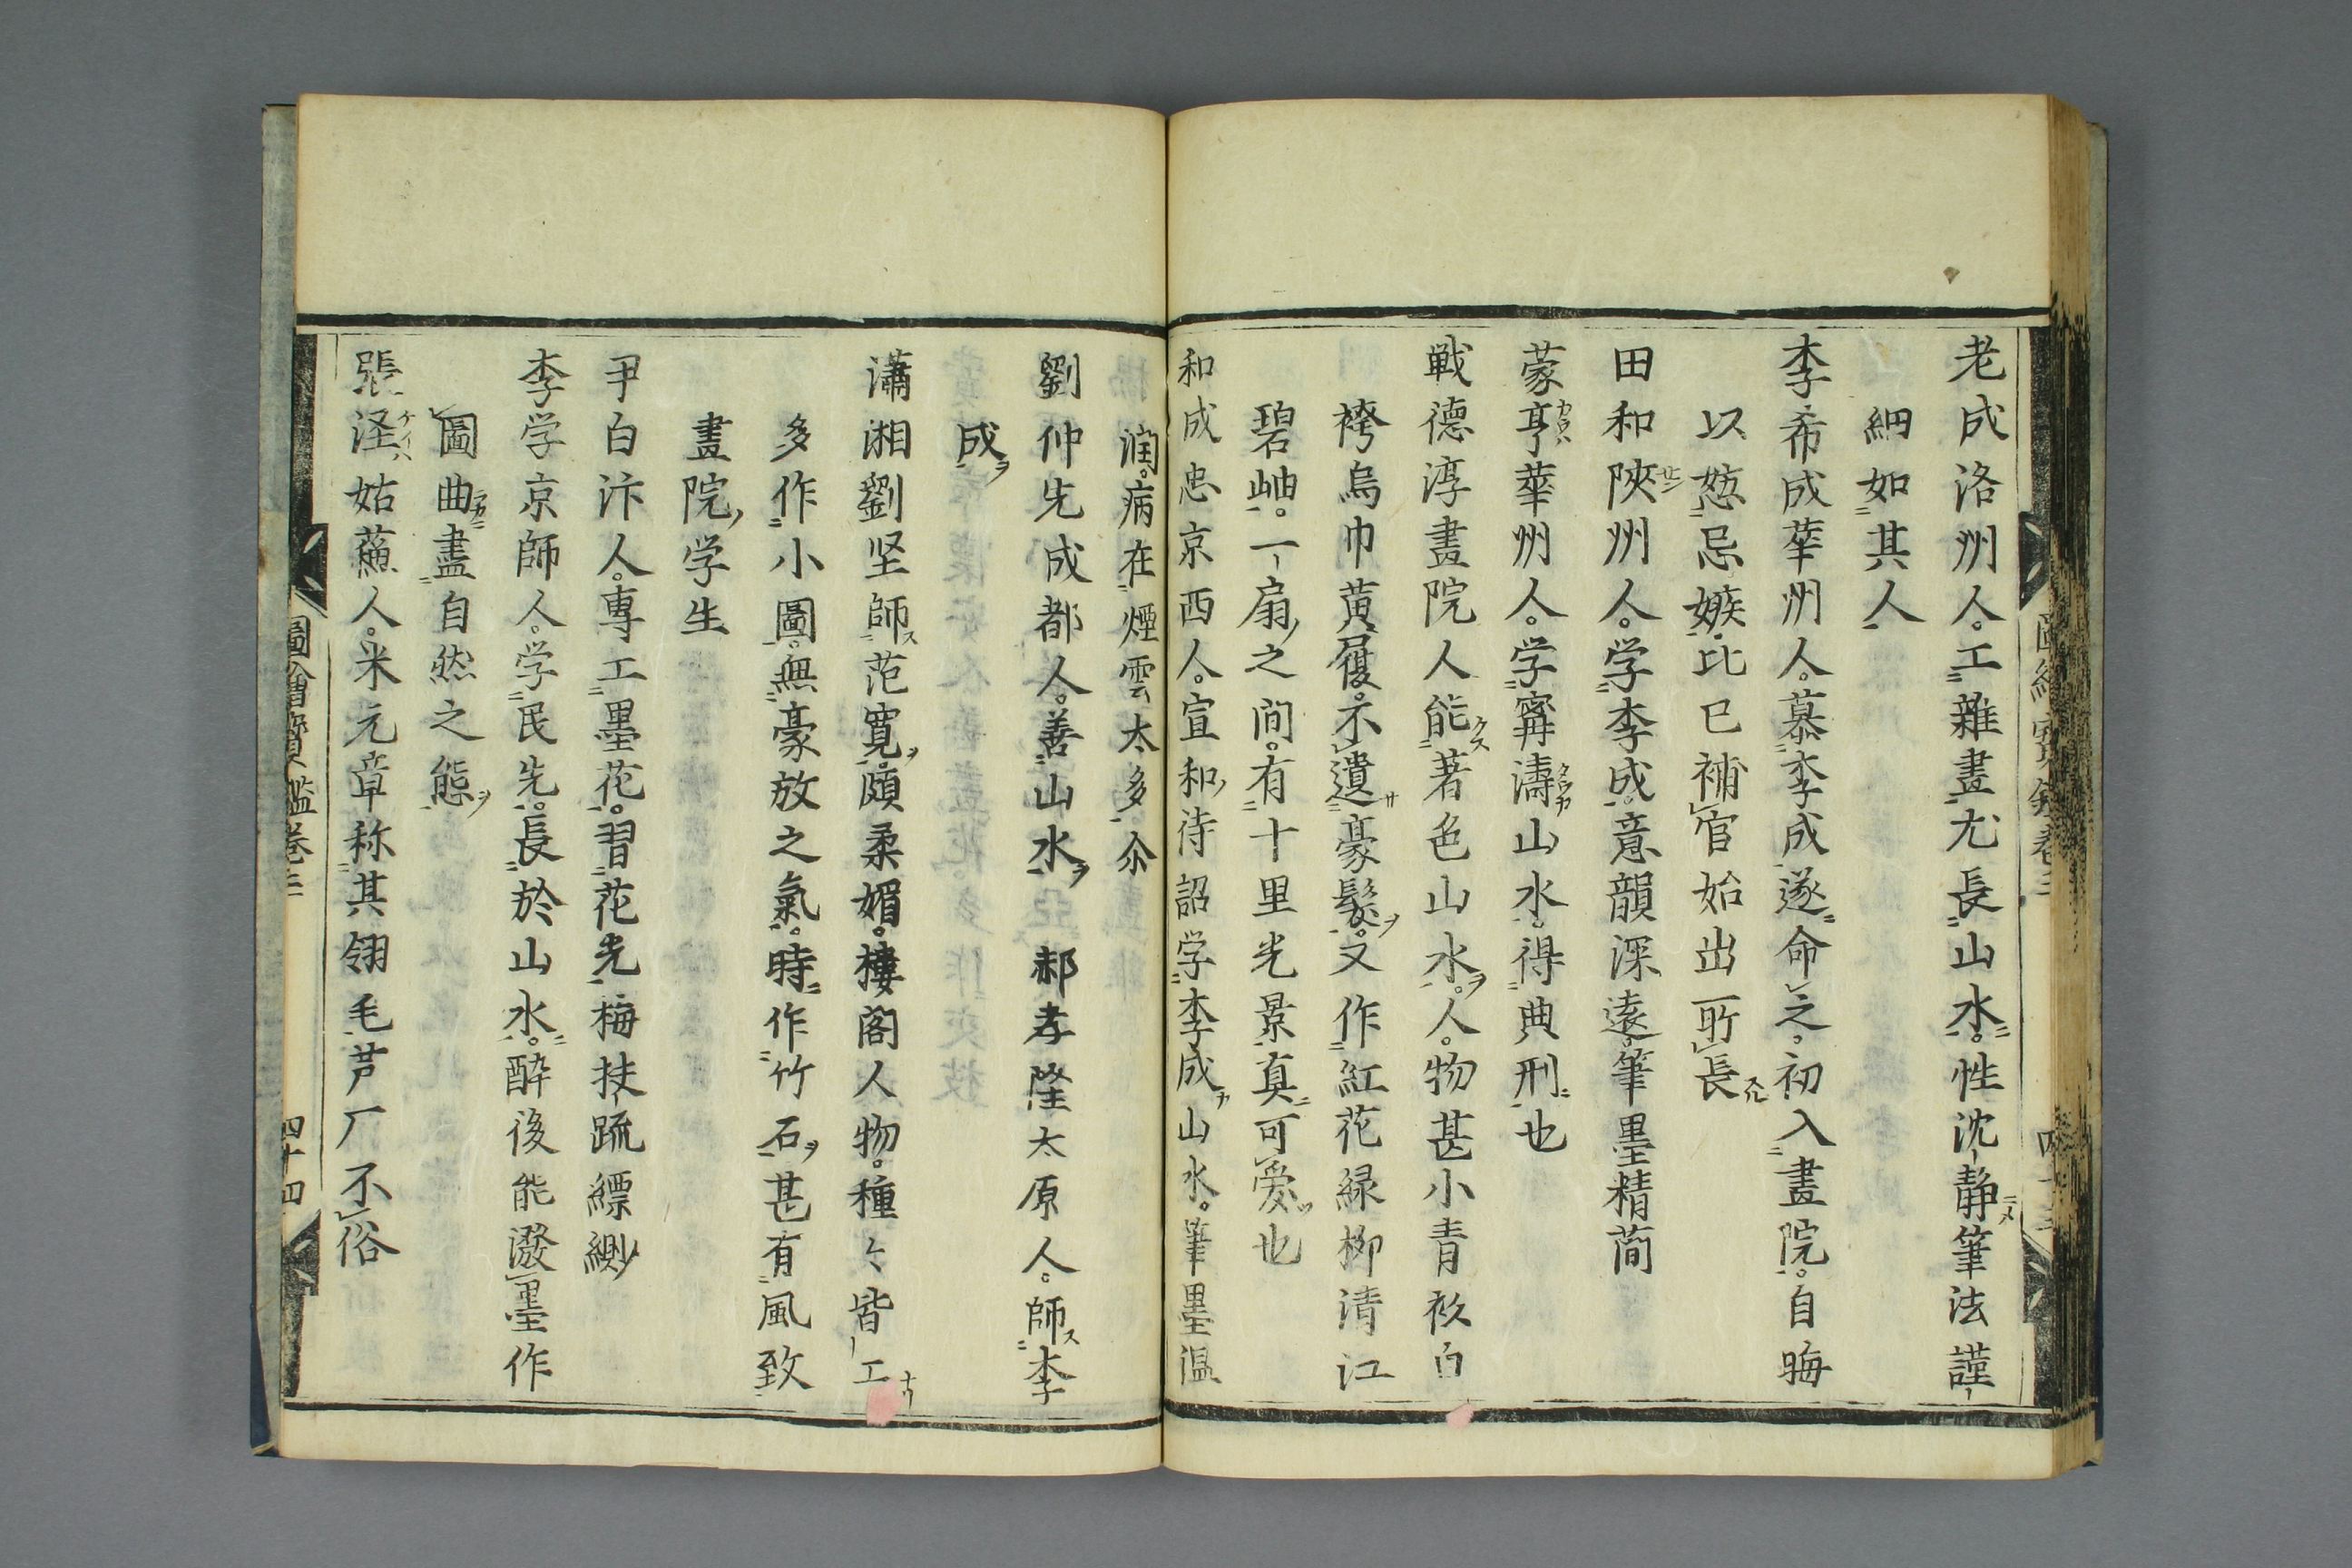 老成洛州人。工雜畫尤長山水。性沈静筆法謹
細如其人
李希成華州人。慕李成遂命之。初入畫院。自晦
以愆忌嫉比已補官始出所長
田和陝州人。学李成。意韻深遠。筆墨精简
蒙亨華州人。学寗濤山水。得典刑也
戦德淳畫院人能著色山水。人物甚小青衫白
袴烏巾黄履。不遺豪髮。又作紅花緑栁清江
碧岫。一扇之间。有十里光景真可愛也
和成忠京西人。宣和待詔学李成山水。筆墨温
润。病在煙雲太多尒
劉仲先成都人。善山水 郝孝隆太原人。師李
成
瀟湘劉坚師范寛。頗柔媚。樓阁人物。種〻皆工
多作小圖。無豪放之氣。時作竹石甚有風致
畫院学生
尹白汴人。專工墨花。習花光梅扶疏縹緲
李学京師人。学民先。長於山水。醉後能潑墨作
圖曲盡自然之態
張涇姑蘓人。米元章称其翎毛芦厂不俗
圖繪寳鑑卷三 四十四